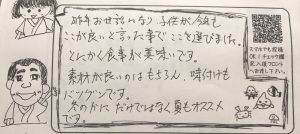 昨年お世話になり、子供が今年も
ここが良いと言った事でここを選びました。
とにかく食事が美味いです。
素材が良いのはもちろん、味付けも
バツグンです。
冬のカニだけではなく夏もオススメ
です。
スマホでも投稿
OK!チェック欄
記入後フロント
へお渡し下さい。